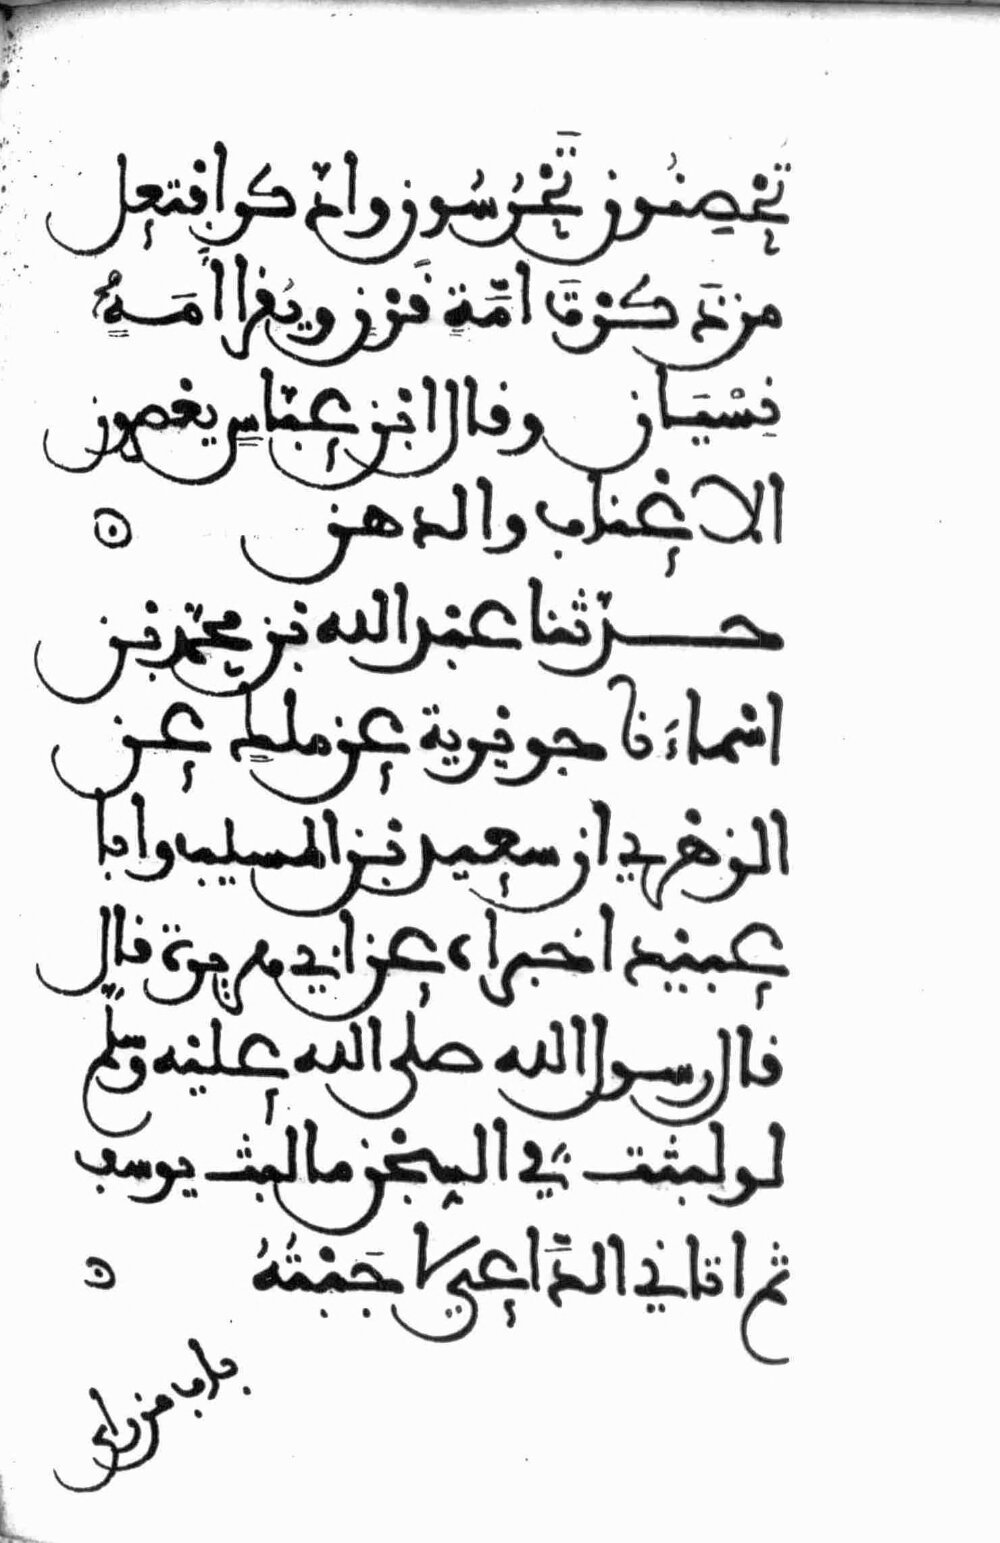 تُحْصِنُون تَحْرُسُون وادّكر افتعل
من ذَكَرْتَ أمّة قَرْن ويُقرأ أَمَهٍ
نِسْيَان وقال ابن عبّاس يعصرون
الاعناب والدهن
حدّثنا عبد الله بن محمّد بن
اسماءَ نا جويرية عن ملك عن
الزهري ان سعيد بن المسيب وابا
عبيد اخبراه عن ابي هريرة قال
قال رسول الله صلى الله عليه وسلم
لو لبثت في السجن ما لبث يوسف
ثم اتاني الدّاعي لاجَبْتُهُ
باب من راى